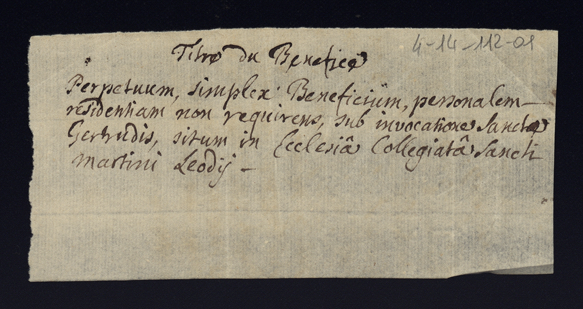 4-14-112-01
Titre du Benefice
Perpetuum, simplex Beneficiüm, personalem
residentiam non requirens, sub invocatione Sanctæ
Gertrudis, situm in Ecclesiâ Collegiatâ Sancti
martini Leodij -